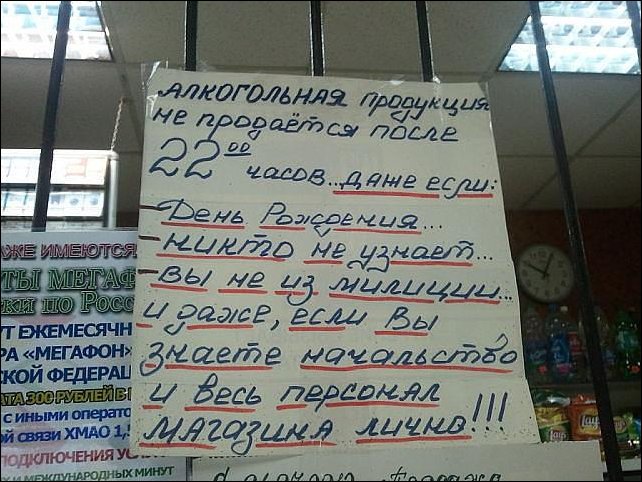 АЛКОГОЛЬНАЯ ПРОДУКЦИЯ
НЕ ПРОДАЁТСЯ ПОСЛЕ
22 00 ЧАСОВ.. ДАЖЕ ЕСЛИ:
– День Рождения...
– НИКТО НЕ УЗНАЕТ...
– ВЫ НЕ ИЗ МИЛИЦИИ...
И ДАЖЕ, ЕСЛИ ВЫ
ЗНАЕТЕ НАЧАЛЬСТВО
И ВЕСЬ ПЕРСОНАЛ
МАГАЗИНА ЛИЧНО!!!
ИМЕЮТСЯ
МЕГАФ
по Росс
ЕЖЕМЕСЯЧН
«МЕГАФОН»
ФЕДЕРАЦ
300 РУБЛЕЙ В
с иными операто
связи ХМАО 1,
ПОДКЛЮЧЕНИЯ УС
МЕЖДУНАРОДНЫХ МИНУТ
Lay's